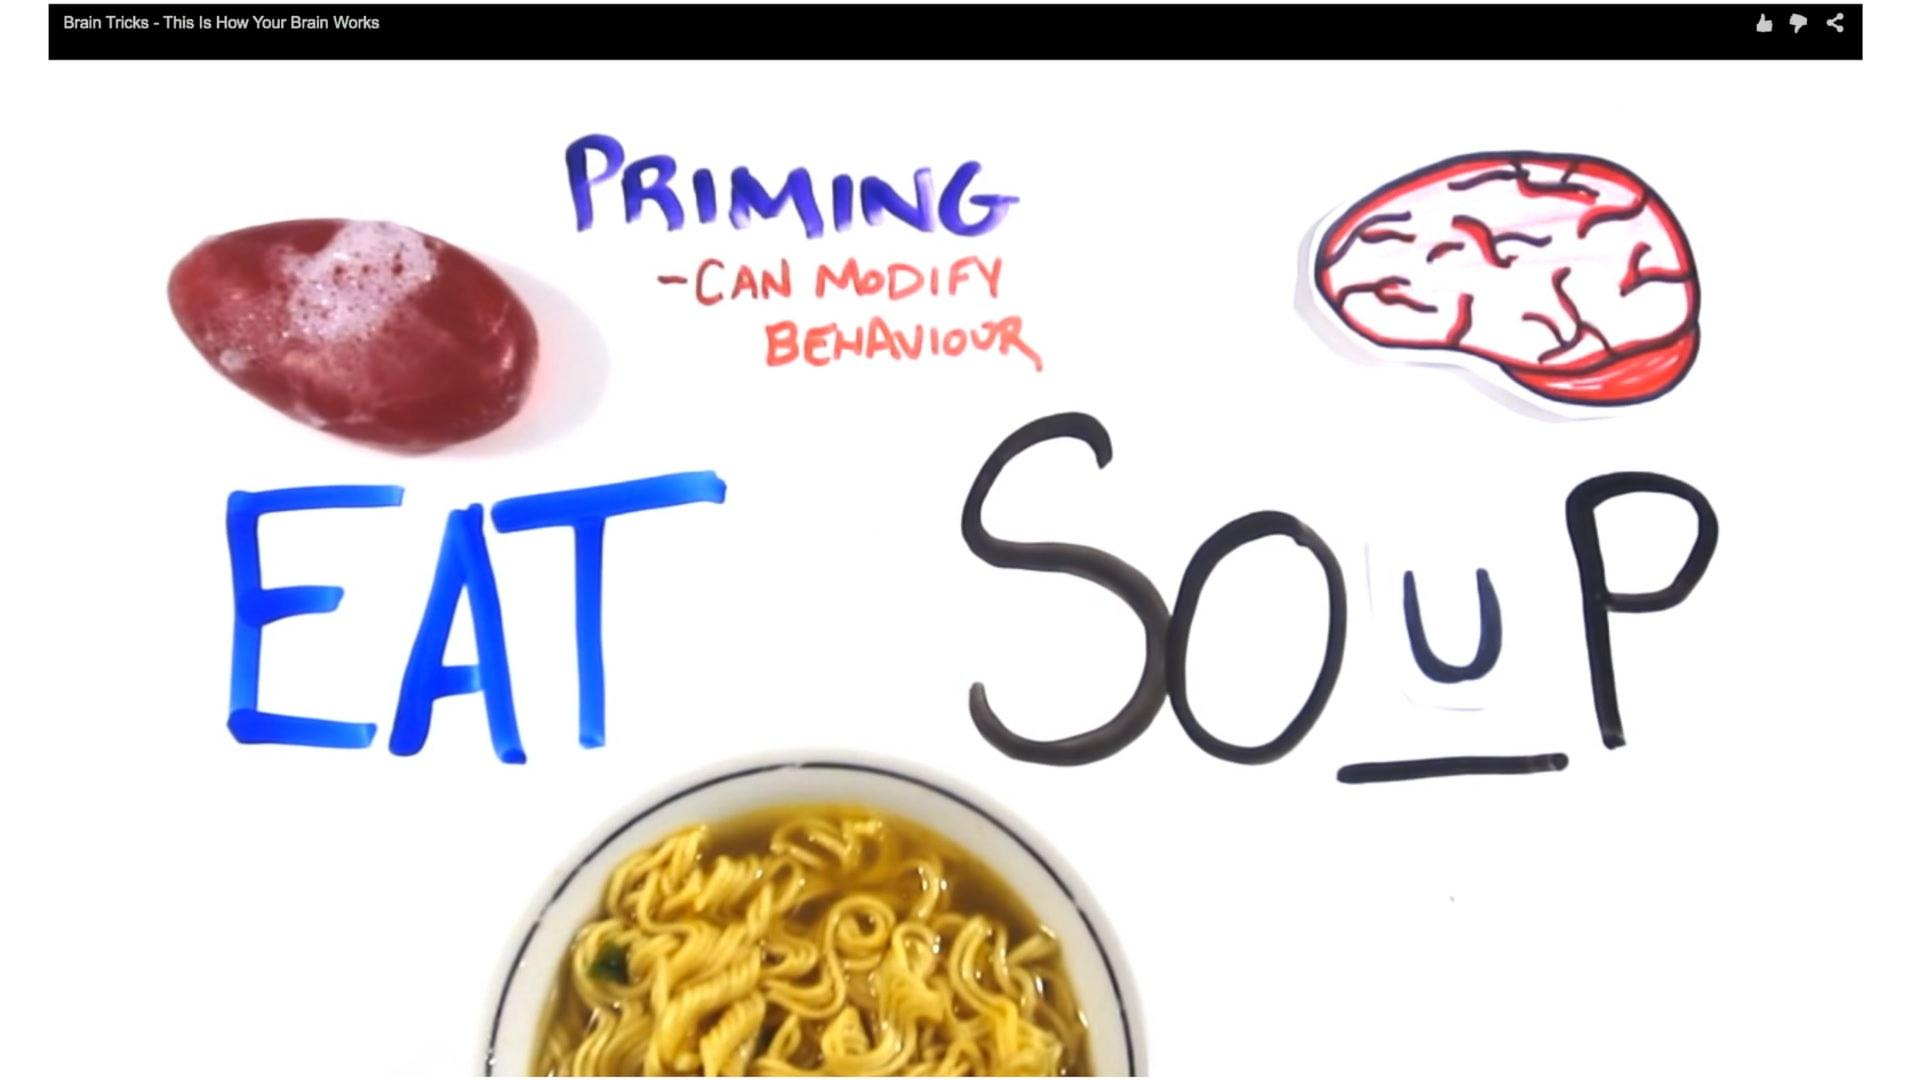 Brain Tricks - This Is How Your Brain Works
PRIMING
-CAN MODIFY
BEHAVIOUR
EAT SOUP